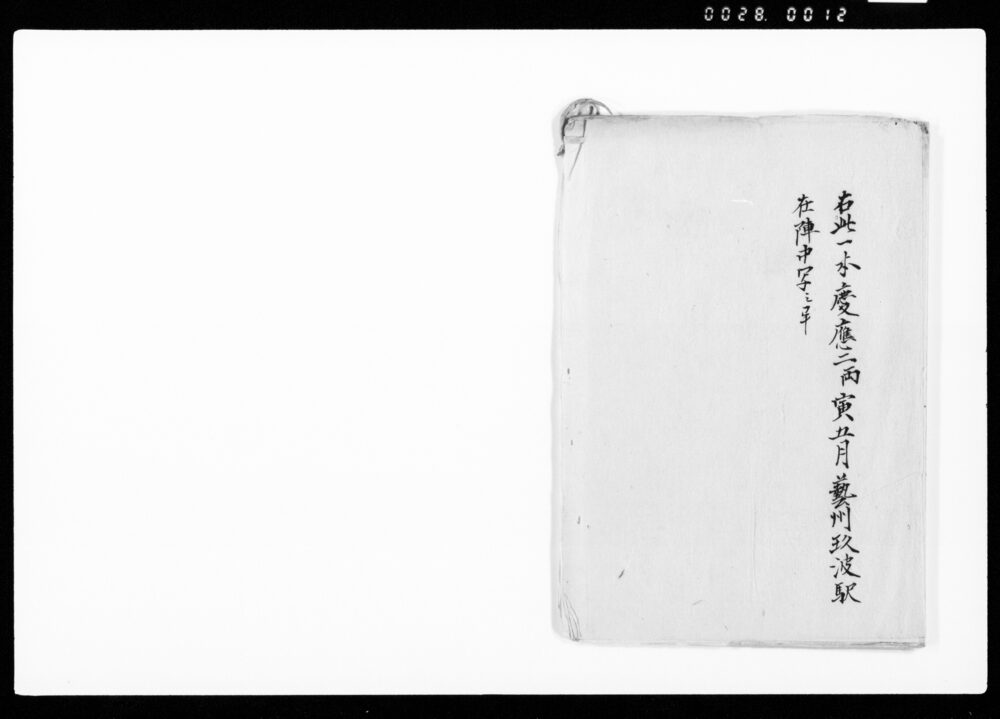 0028. 0012
右此一本慶應二丙寅五月藝州玖波駅
在陣中写之畢